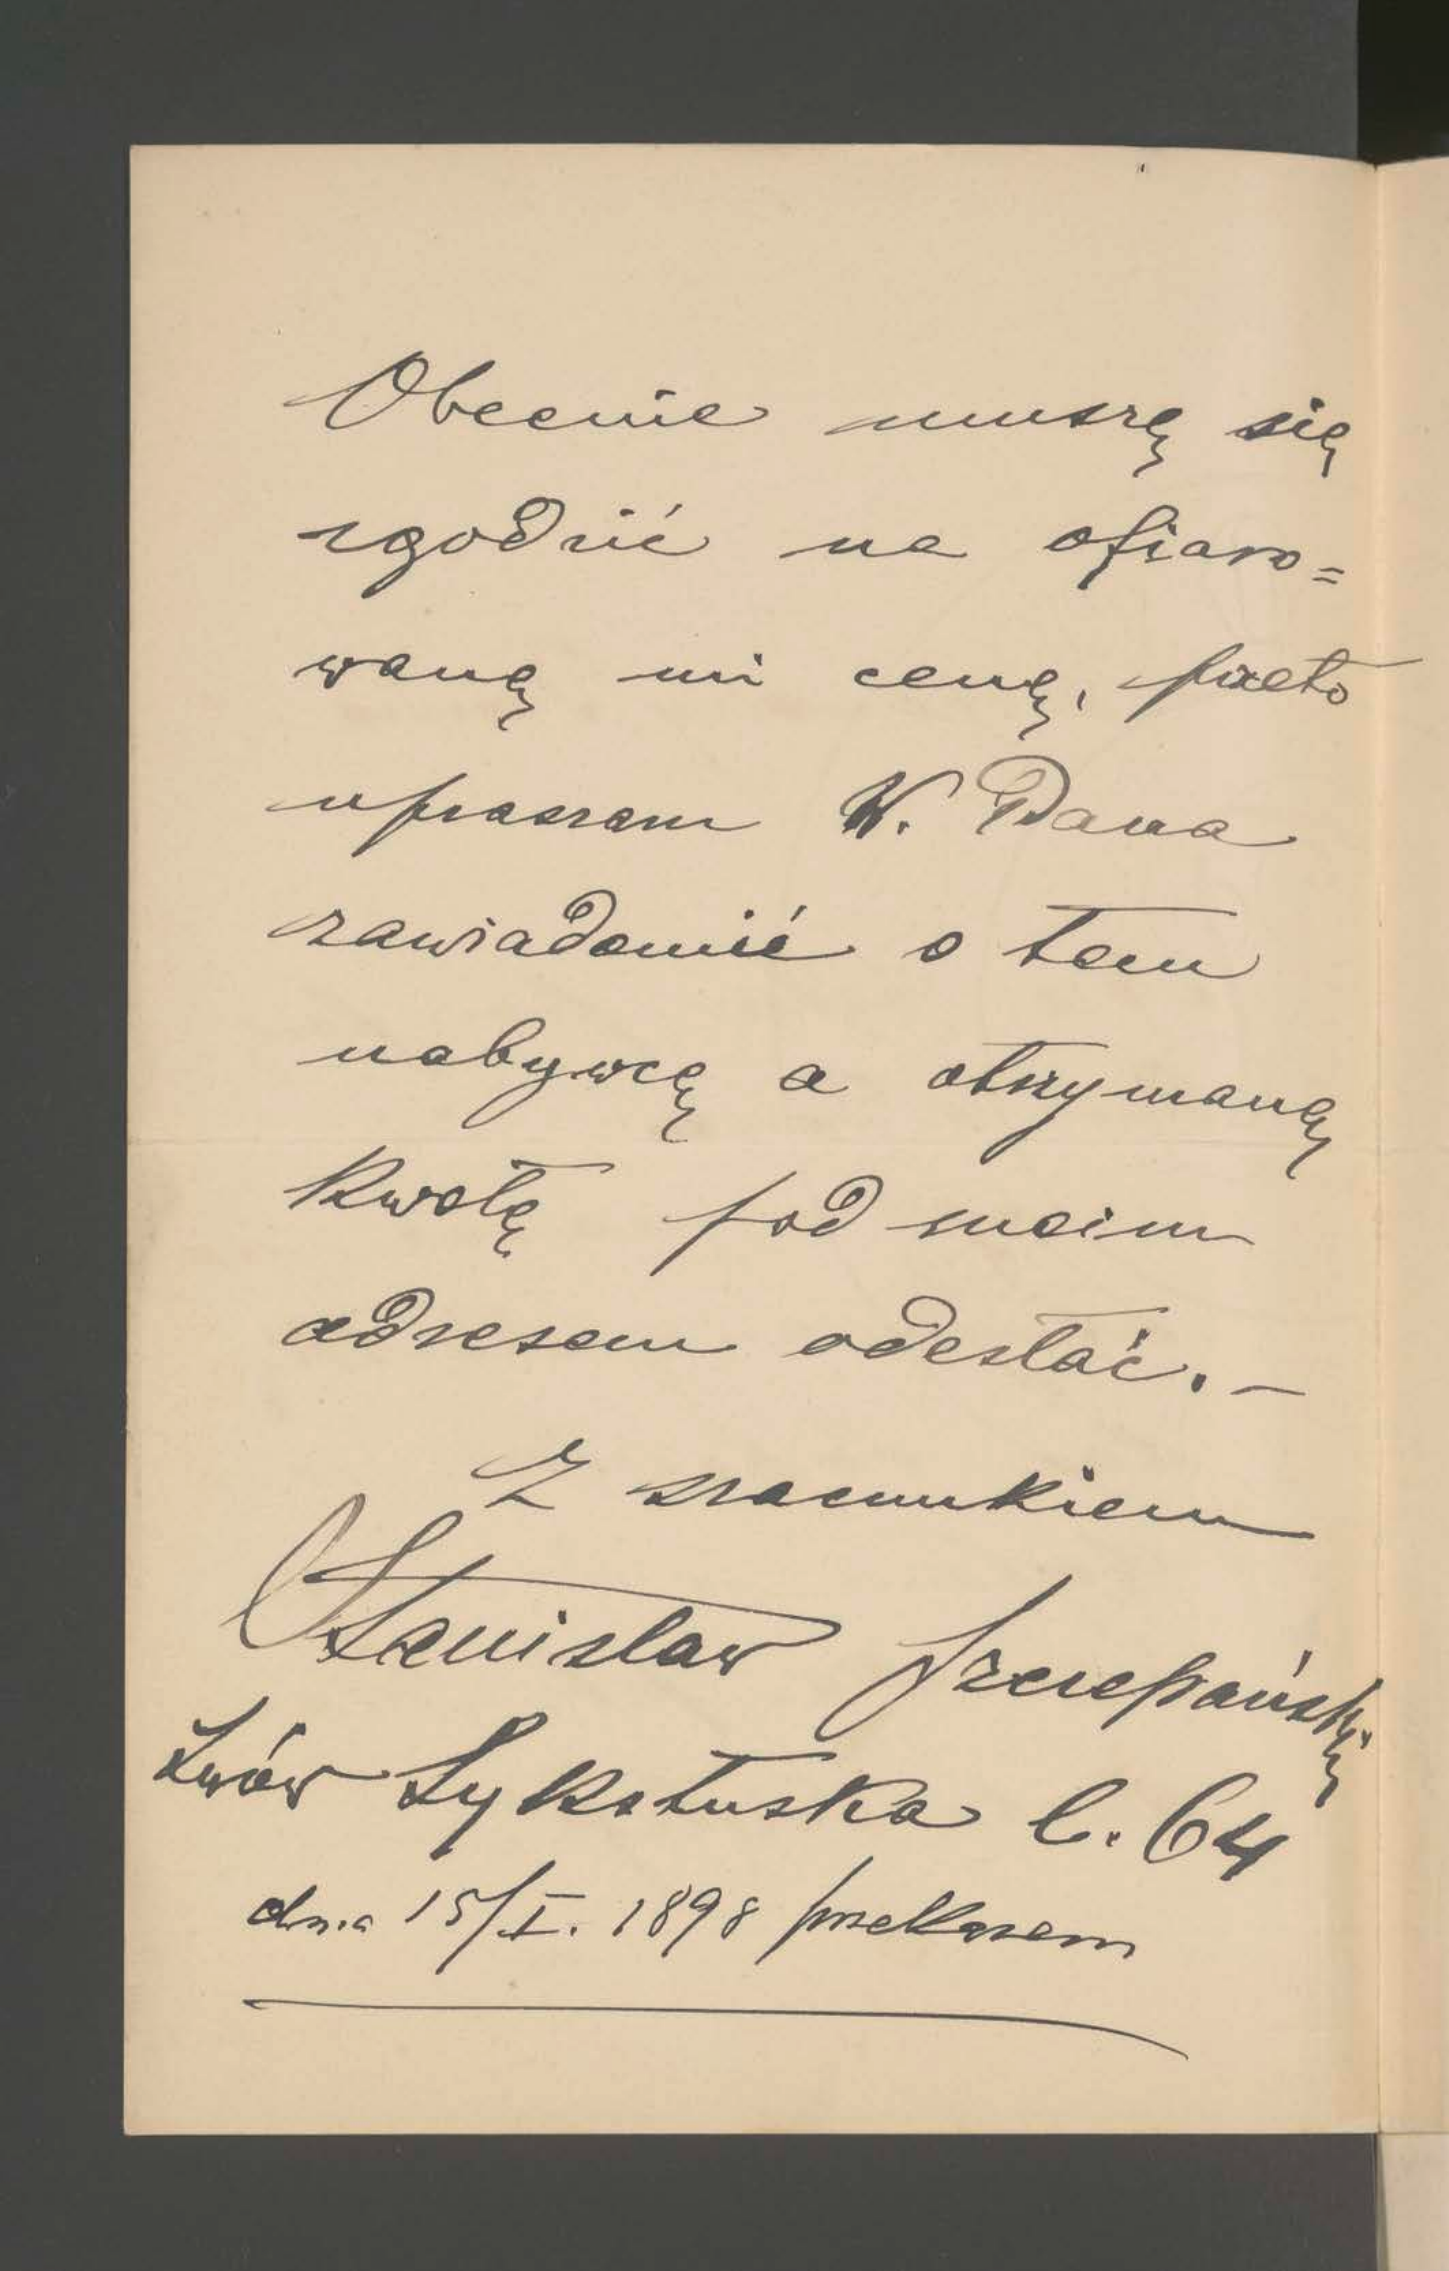 Obecnie muszę się
zgodzić na ofiaro=
waną mi cenę, przeto
upraszam W. Pana
zawiadomić o tem
nabywcę a otrzymaną
kwotę pod moim
adresem odesłać. —
Z szacunkiem
Stanisław Szczepański
Lwów Sykstuska l. 64
dnia 15/I. 1898 przekazem